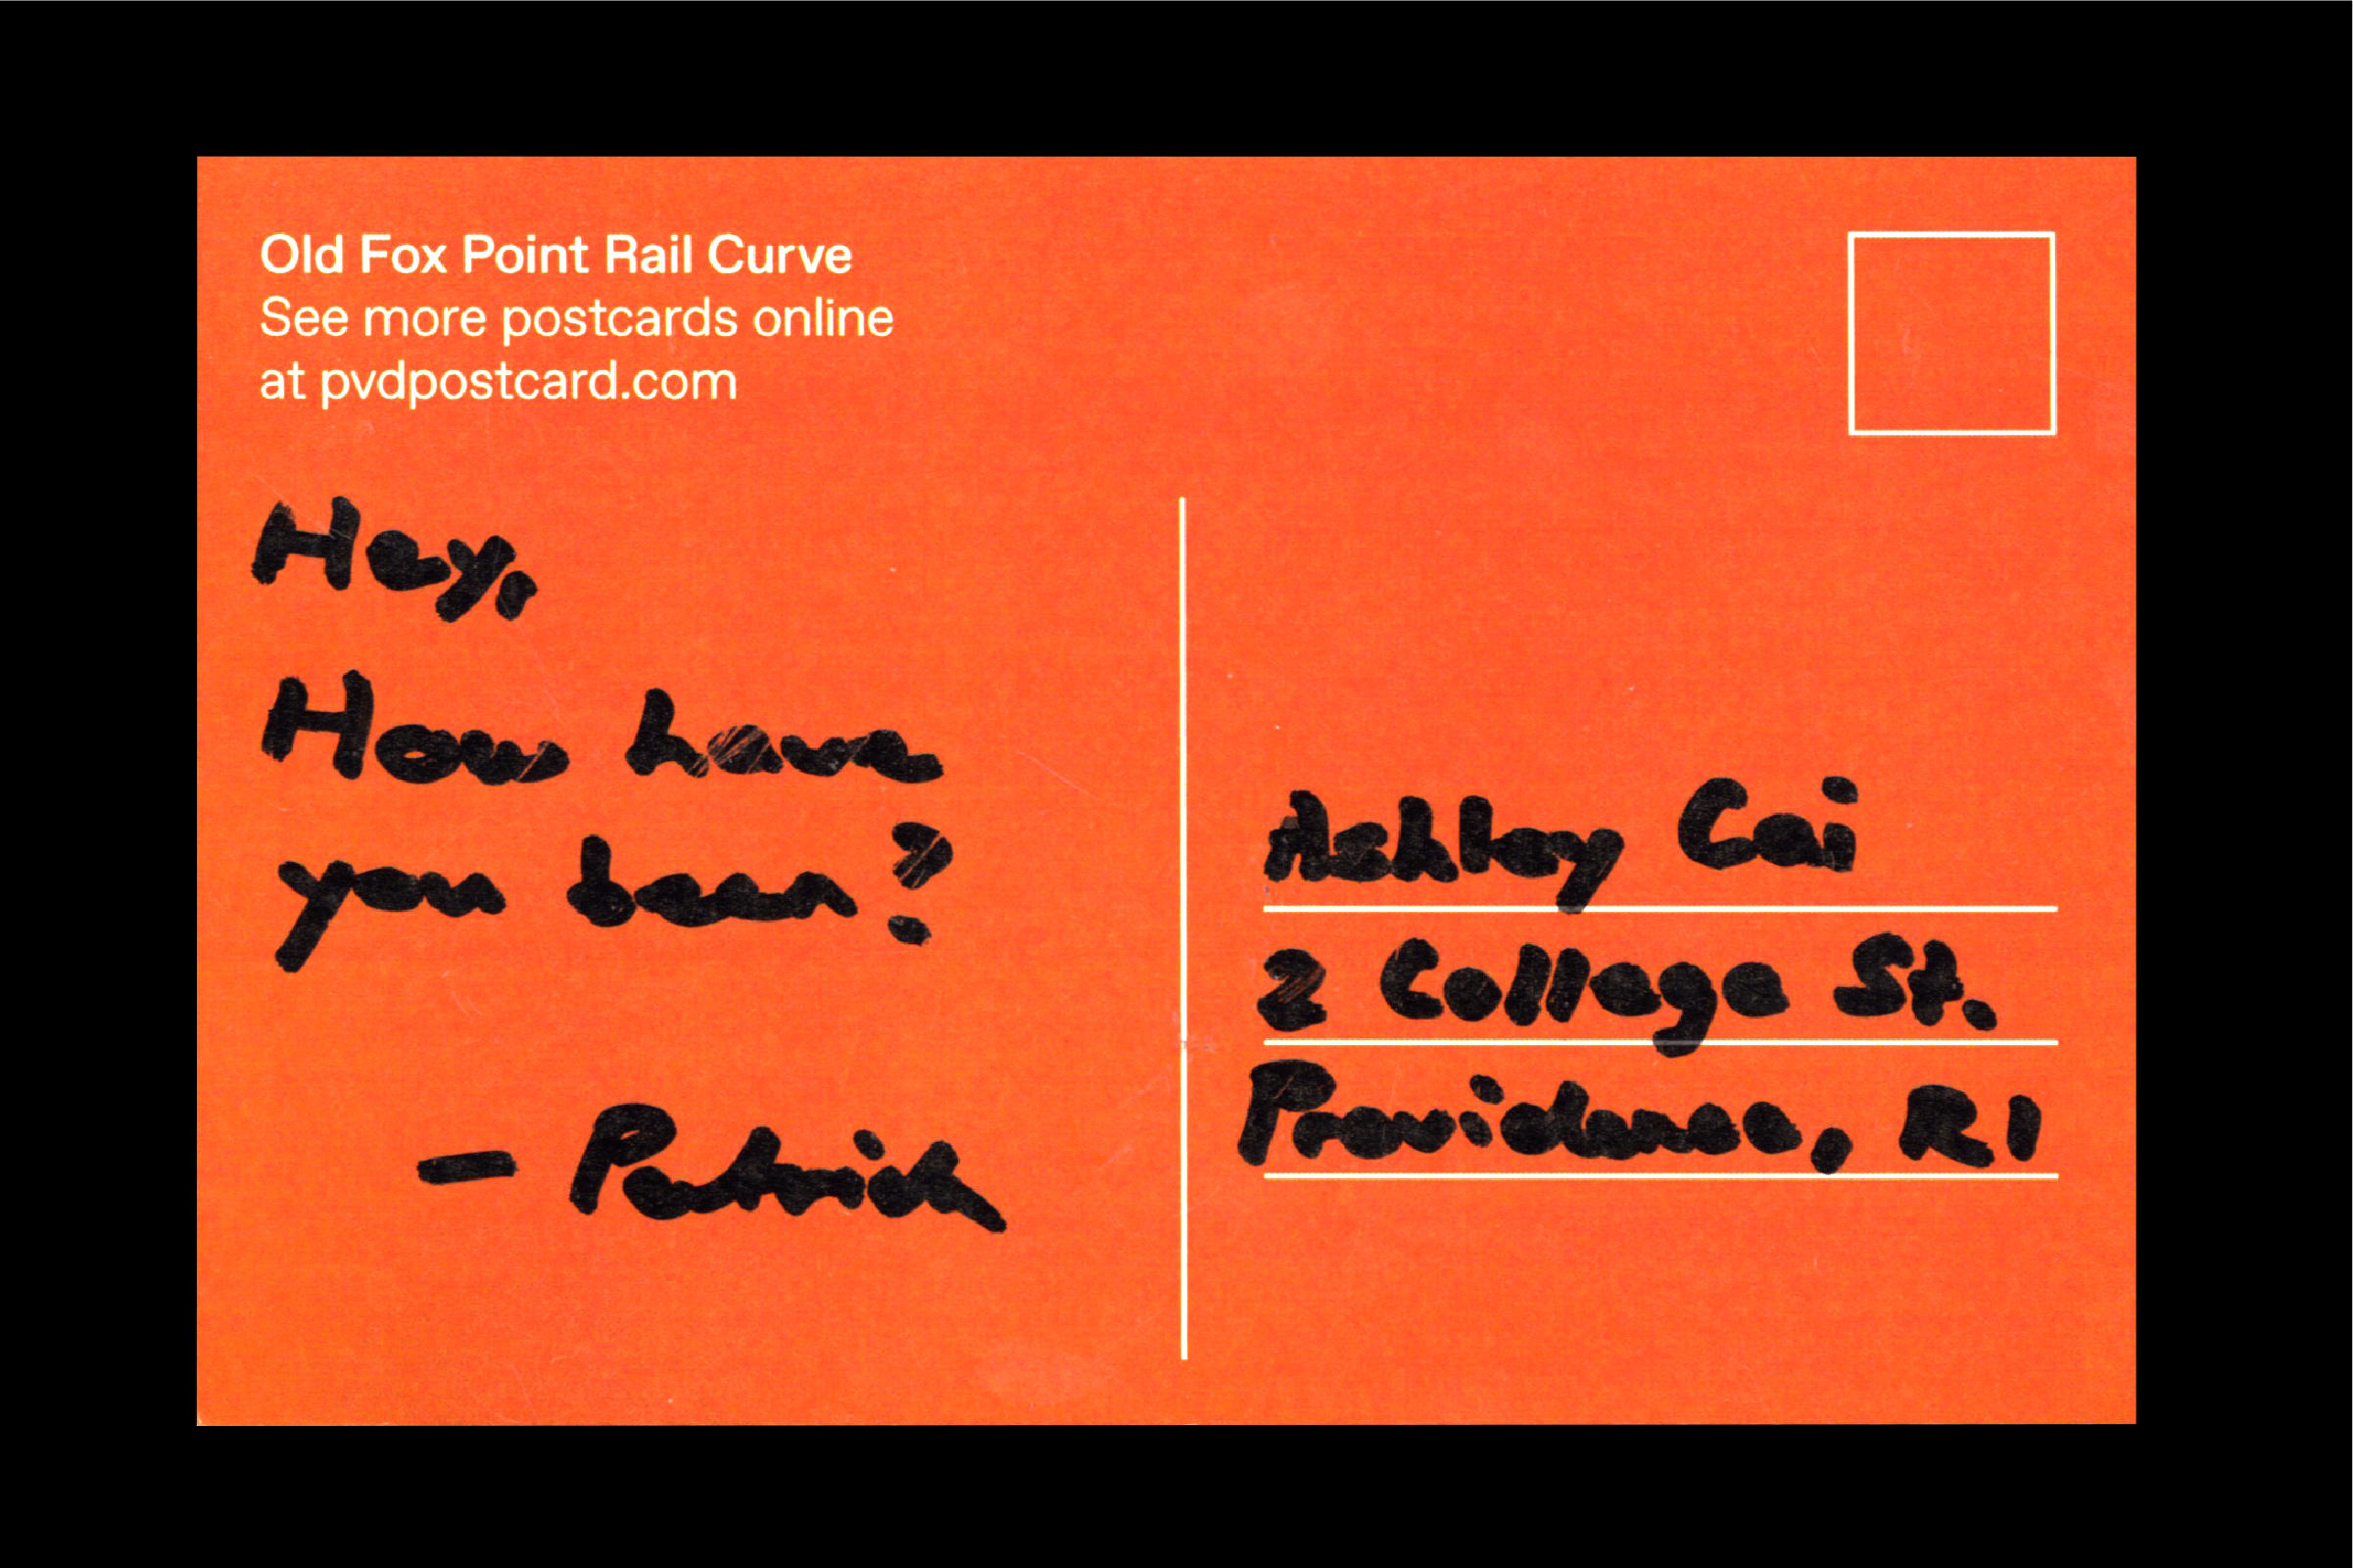 Old Fox Point Rail Curve
See more postcards online
at pvdpostcard.com
Hey,
How have
you been?
— Patrick
Ashley Cai
2 College St.
Providence, RI